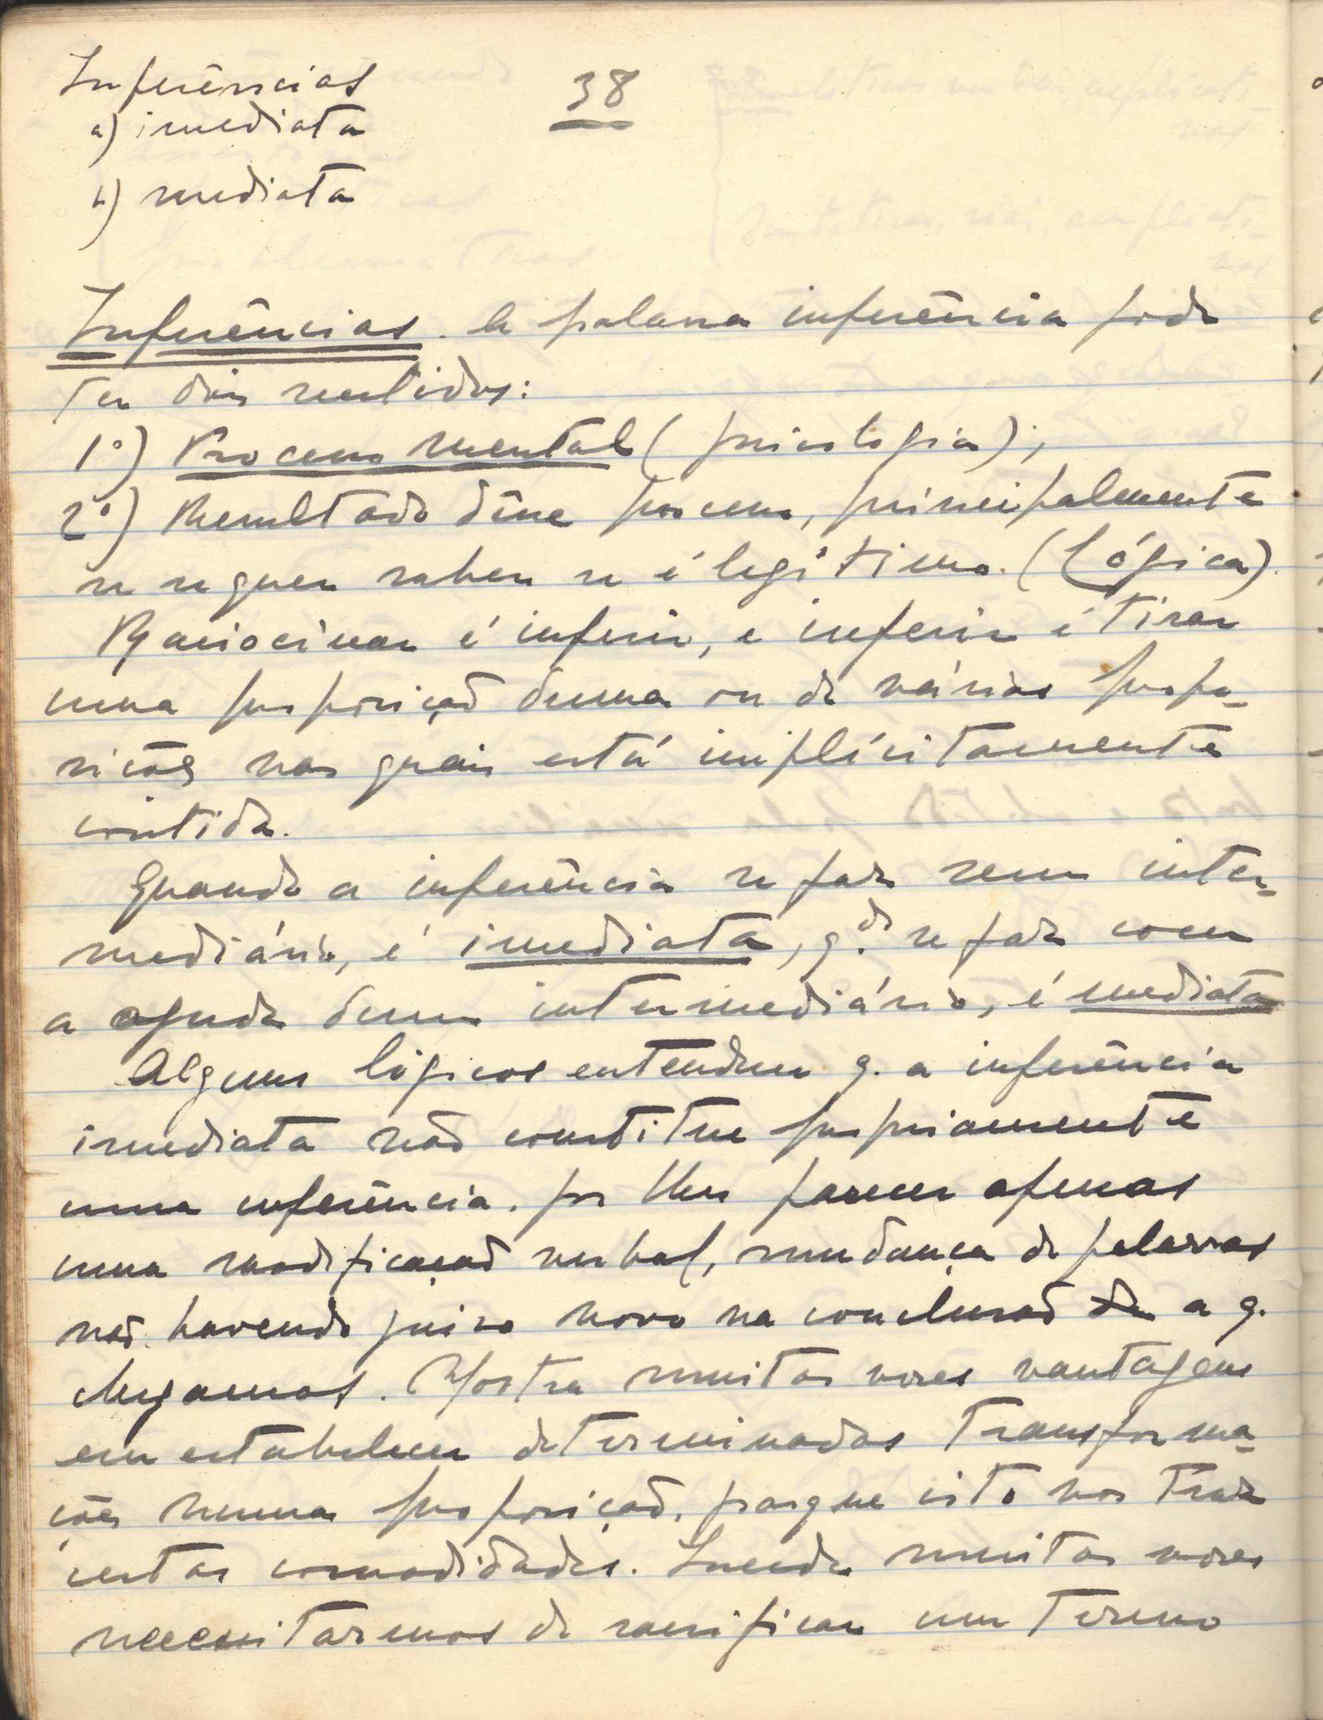 Inferências
38
a) imediata
b) mediata
Inferências. A palavra inferência pode
ter dois sentidos:
1º) Processo mental (psicologia);
2º) Resultado dêsse processo, principalmente
se se quer saber se é legítimo. (Lógica).
Raciocinar é inferir, e inferir é tirar
uma proposição duma ou de várias propo-
sições nas quais está implícitamente
contida.
Quando a inferência se faz sem inter-
mediário, é imediata, q.do se faz com
a ajuda dum intermediário, é mediata
Alguns lógicos entendem q. a inferência
imediata não constitue propriamente
uma inferência. por lhes parecer apenas
uma modificação verbal, mudança de palavras
não havendo juizo novo na conclusão a q.
chegamos. Mostra muitas vezes vantagens
em estabelecer determinadas transforma-
ções numa proposição, porque isto nos traz
certas comodidades. Sucede muitas vezes
necessitarmos de sacrificar um termo